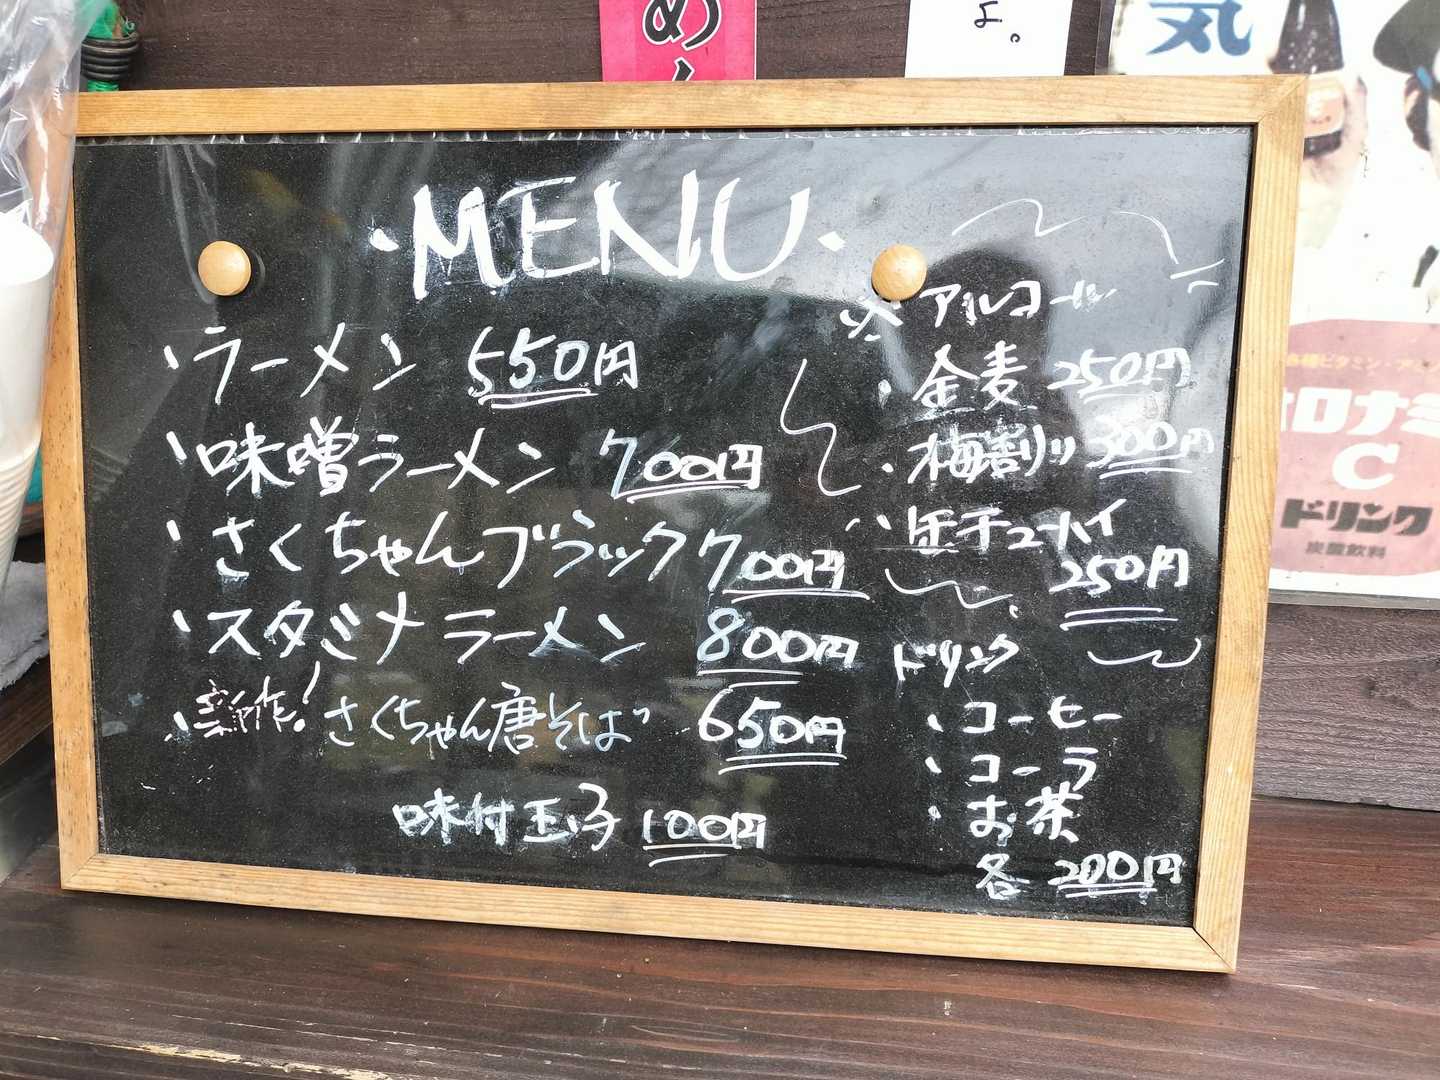 め
よ。
気
・MENU・
、ラーメン 550円
、味噌ラーメン 700円
、さくちゃんブラック 700円
、スタミナラーメン 800円
、新作!さくちゃん唐そば 650円
味付玉子 100円
※アルコール
・金麦 250円
・梅割り 300円
、缶チューハイ
250円
ドリンク
、コーヒー
、コーラ
、お茶
各 200円
オロナミ
C
ドリンク
炭酸飲料